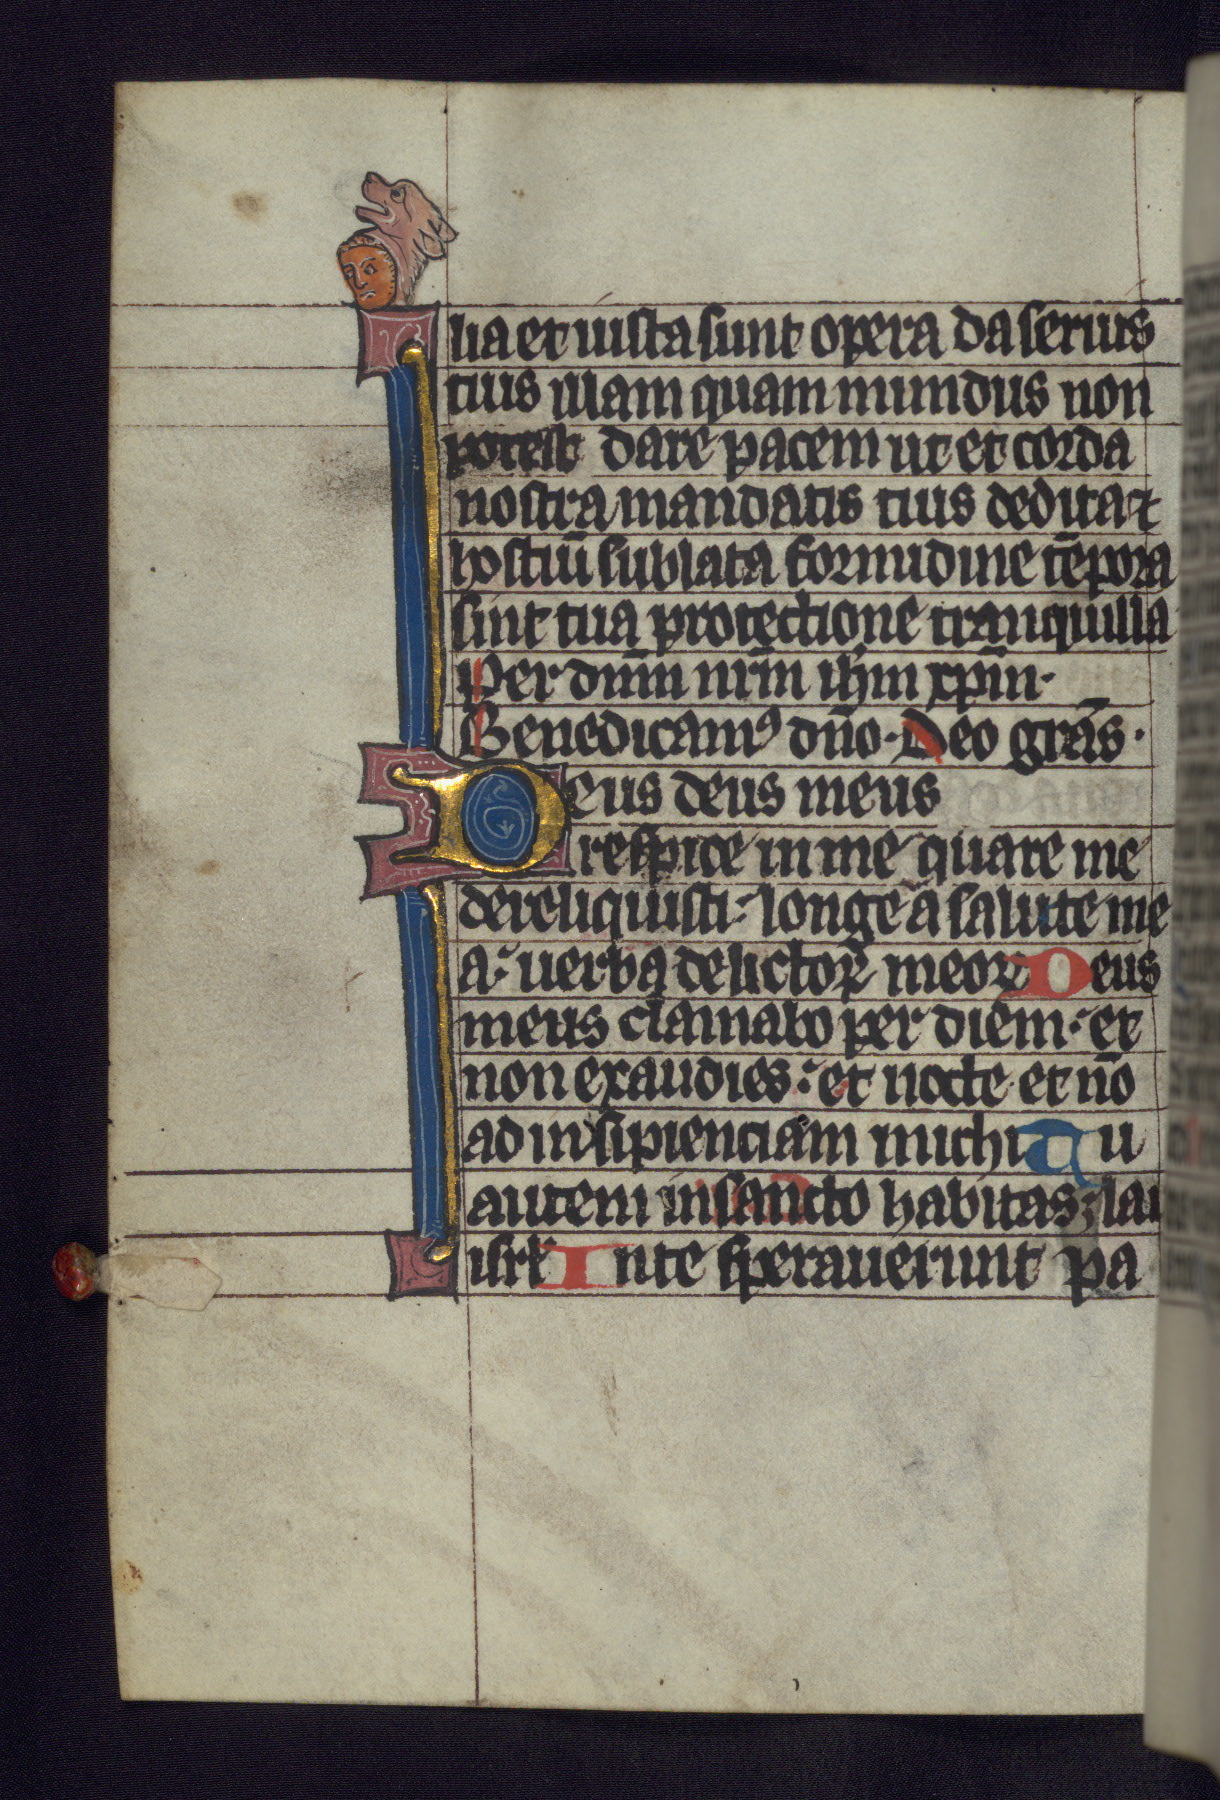 lia et iusta sunt opera da seruis
tuis illam quam mundus non
potest dare pacem ut et corda
nostra mandatis tuis dedita ⁊
hostiū sublata formidine tēpora
sint tua protectione tranquilla
Per dn̄m nr̄m ihm xp̄m·
Benedicamꝰ dn̄o· Deo grās·
Deus deus meus
respice in me quare me
dereliquisti: longe a salute me
a: uerba delictoꝝ meoꝝ Deus
meus clamabo per diem: et
non exaudies: et nocte et nō
ad insipienciam michi Tu
autem in sancto habitas: lau
isrł In te sperauerunt pa